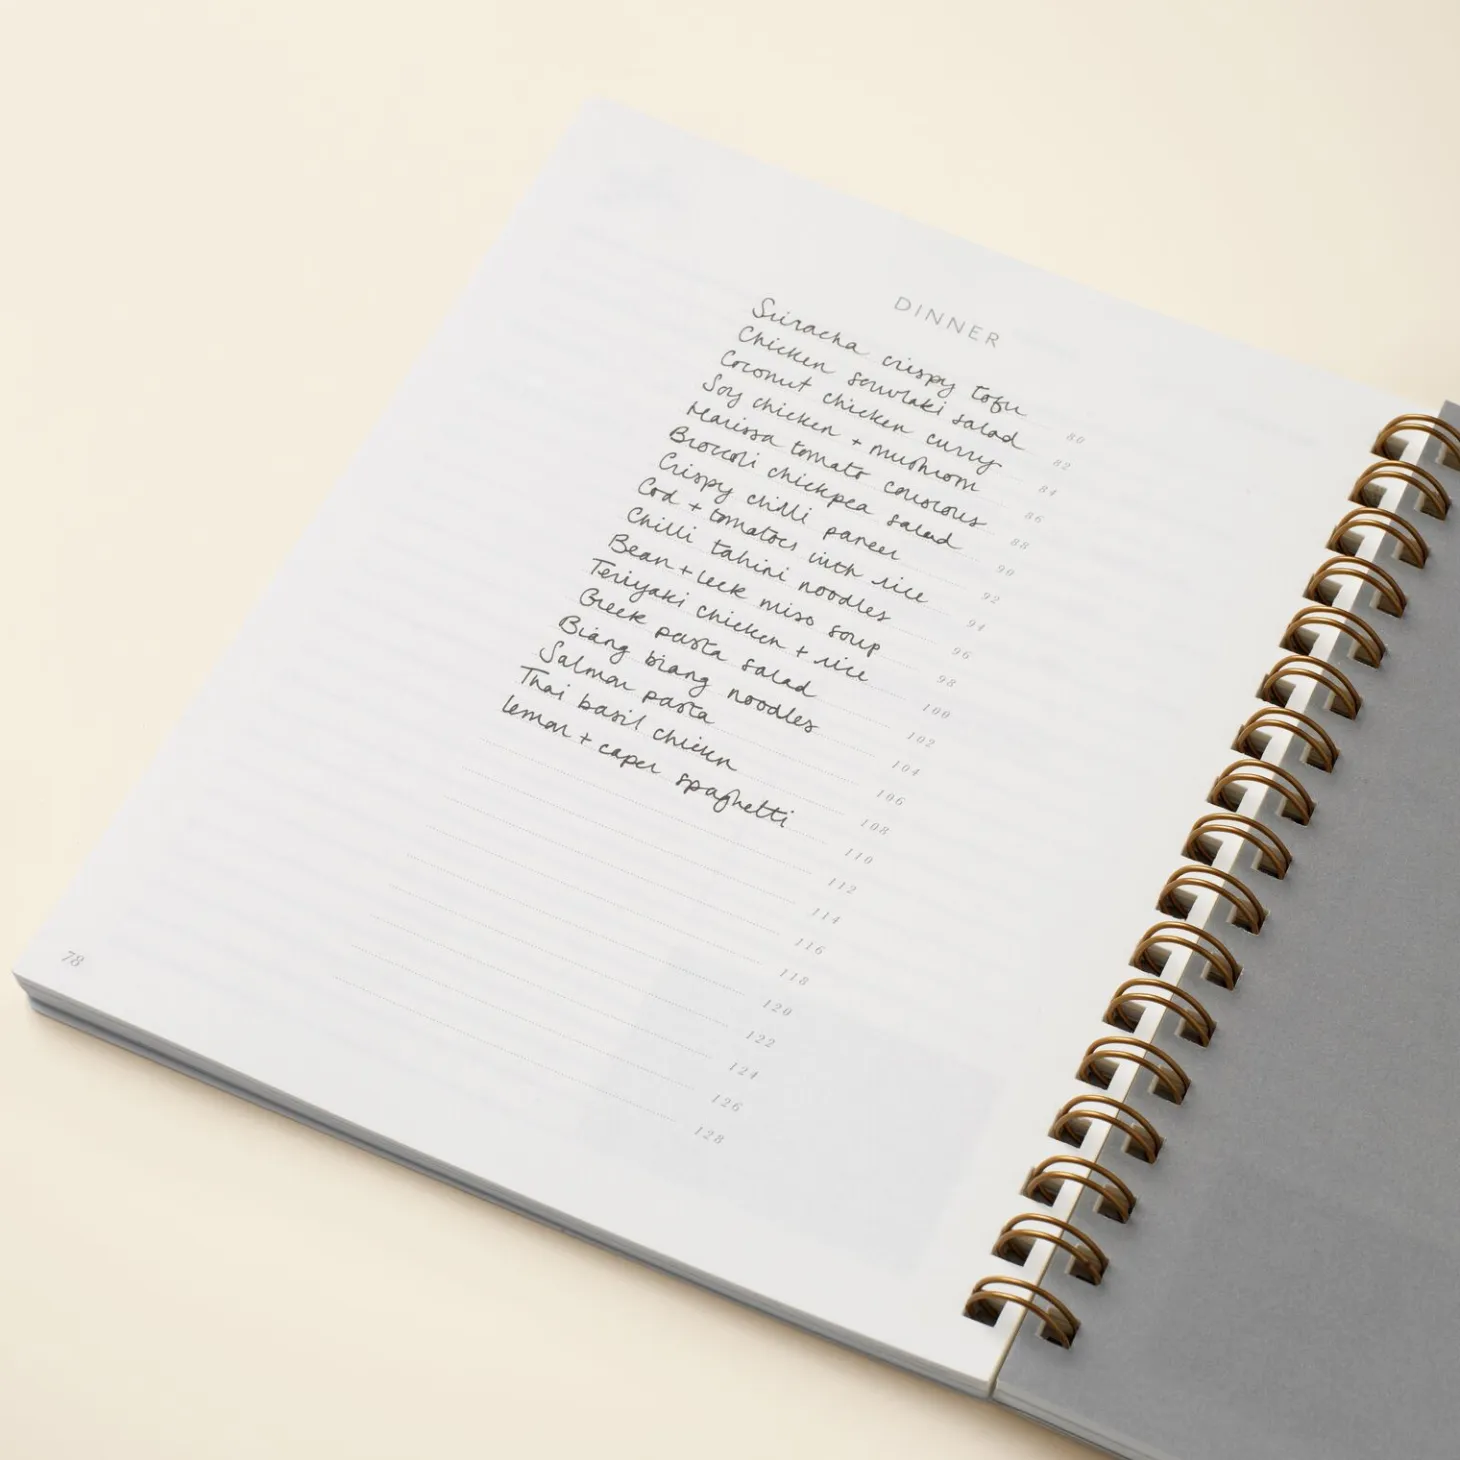 DINNER
Sriracha crispy tofu 80
Chicken souvlaki salad 82
Coconut chicken curry 84
Soy chicken + mushroom 86
Harissa tomato couscous 88
Broccoli chickpea salad 90
Crispy chilli paneer 92
Cod + tomatoes with rice 94
Chilli tahini noodles 96
Bean + leek miso soup 98
Teriyaki chicken + rice 100
Greek pasta salad 102
Biang biang noodles 104
Salmon pasta 106
Thai basil chicken 108
Lemon + caper spaghetti 110
112
114
116
118
120
122
124
126
128
78